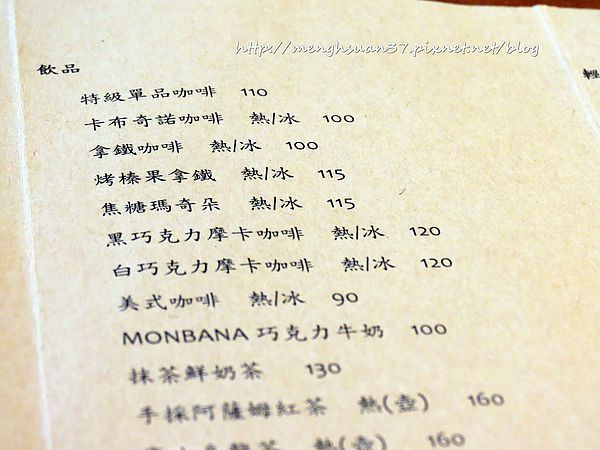 http://menghsuan37.pixnet.net/blog
飲品
輕
特級單品咖啡 110
卡布奇諾咖啡 熱/冰 100
拿鐵咖啡 熱/冰 100
烤榛果拿鐵 熱/冰 115
焦糖瑪奇朵 熱/冰 115
黑巧克力摩卡咖啡 熱/冰 120
白巧克力摩卡咖啡 熱/冰 120
美式咖啡 熱/冰 90
MONBANA 巧克力牛奶 100
抹茶鮮奶茶 130
手採阿薩姆紅茶 熱(壺) 160
茶 熱(壺) 160